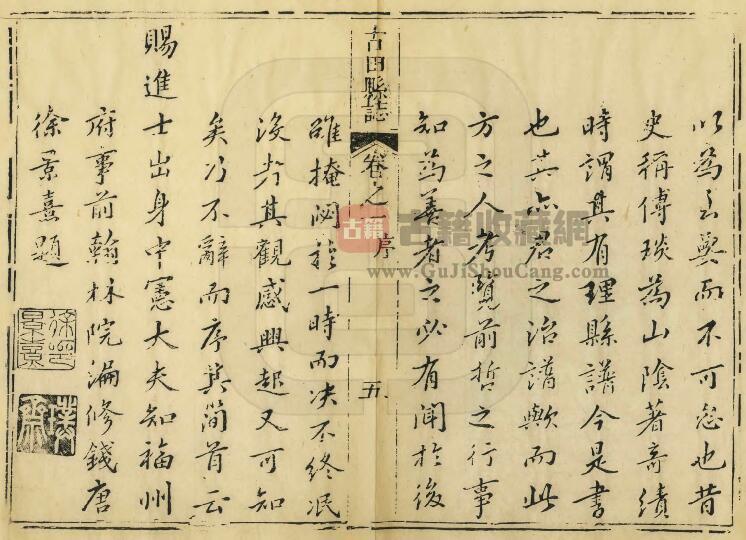 以為而不可忽也昔
史稱傅琰為山陰著奇績
時謂其有理縣譜今是書
也其亦君之治譜歟而此
方之人考覽前哲之行事
知為善者之必有聞於後
古田縣誌 卷之 序 五
雖掩於一時而決不終泯
沒於其觀感興起又可知
矣乃不辭而序其簡首云
賜進士出身中憲大夫知福州
府事前翰林院編修錢唐
徐景熹題
古籍
古籍收藏網
www.GuJiShouCang.com